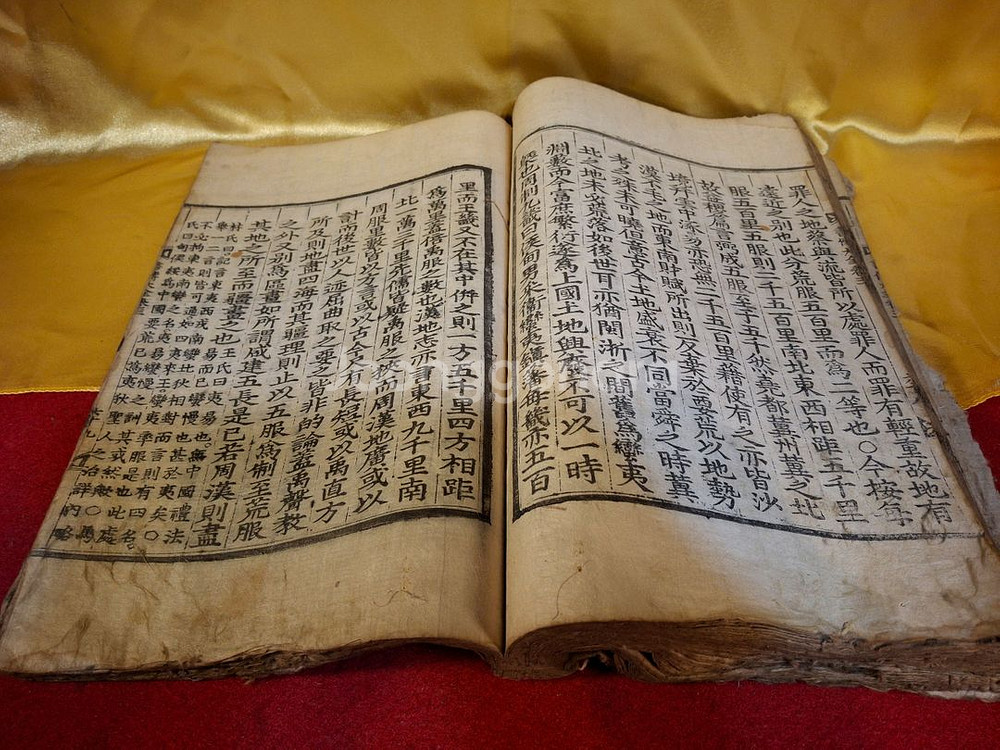 罪人之地蔡與流皆所以處罪人而罪有輕重故地有
遠近之别也此分荒服五百里而為二等也○今按每
服五百里五服則二千五百里南北東西相距五千里
故益稷篇言弼成五服至于五千然堯都冀州冀之北
境并雲中涿易亦恐無二千五百里藉使有之亦皆沙
漠不毛之地而東南財賦所出則反棄於要荒以地勢
考之殊未可曉但意古今土地盛衰不同當舜之時冀
北之地未必荒落如後世耳亦猶閩浙之間舊為蠻夷
淵藪而今富庶繁衍遂為上國土地興廢不可以一時
槩也周制九畿曰侯甸男采衛蠻夷鎮藩每畿亦五百
里而王畿又不在其中併之則一方五千里四方相距
為萬里盖倍禹服之數也漢地志亦言東西九千里南
北一萬三千里先儒皆疑禹服之狹而周漢地廣或以
周服里數皆以方言或以古今尺有長短或以禹直方
計而後世以人迹屈曲取之要之皆非的論盖禹聲教
所及則地盡四海而其疆理則止以五服為制至荒服
之外又别為區畫如所謂咸建五長是已若周漢則盡
其地之所至而疆畫之也王氏曰夷易也無中國禮法
易而已蠻慢也甚於夷矣○
林氏曰記言東夷西戎南蠻北狄相對而言則有四名